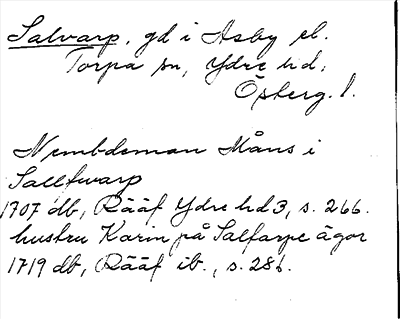 Salvarp, gd i Asby el.
Torpa sn, Ydre hd,
Österg. l.
Nembdeman Måns i
Sallfwarp
1707 db, Rääf Ydre hd 3, s. 266.
hustru Karin på Salfarpe ägor
1719 db, Rääf ib., s. 286.